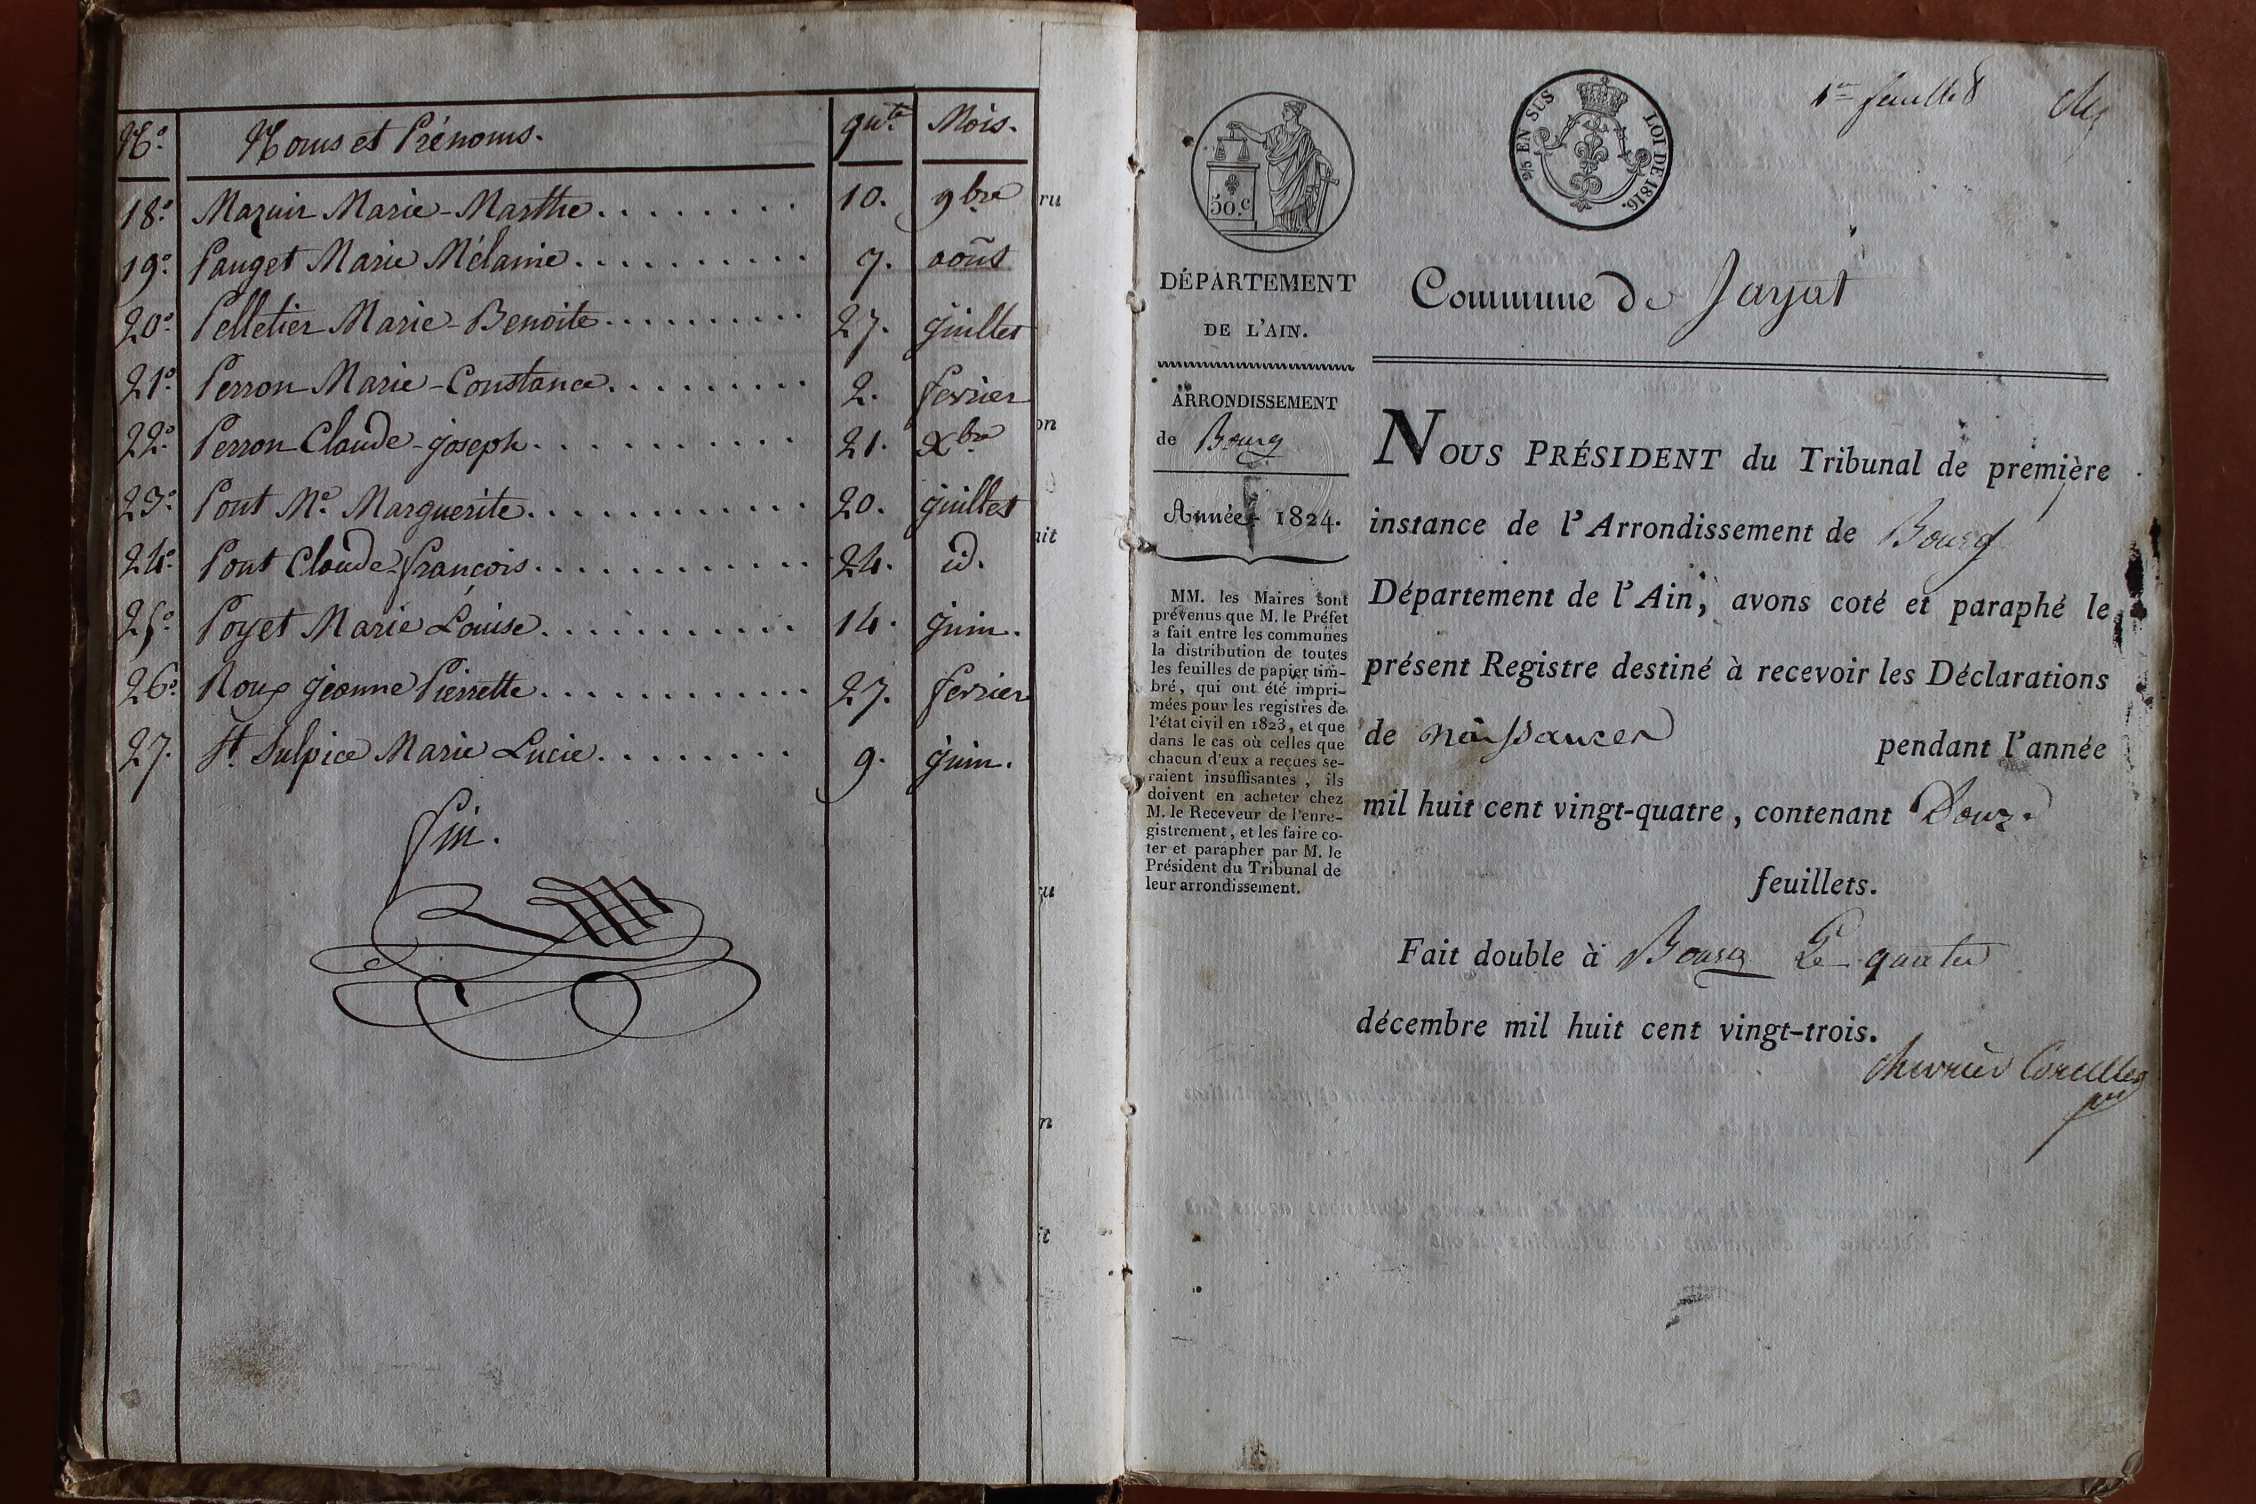 N.o Noms et Prénoms. Mois.
18.o Mazuir Marie-Marthe . . . . . . . . 10. 9bre
19.o Pauget Marie Mélanie . . . . . . . . . . 7. août
20.o Pelletier Marie-Benoite . . . . . . . . . . 27. juillet
21.o Perron Marie-Constance . . . . . . . . . 2. fevrier
22.o Perron Claude-joseph . . . . . . . . . . 21. Xbre
23.o Pont Me. Marguerite . . . . . . . . . . . . 20. juillet
24.o Pont Claude-françois . . . . . . . . . . . . 24. id.
25.o Poyet Marie Louise . . . . . . . . . . . 14. juin.
26.o Roux jeanne Pierrette . . . . . . . . . . . . 27. fevrier
27. St. Sulpice Marie Lucie . . . . . . . . 9. juin.
fin.
ru
on
ait
ru
n
it
1er feuillet
50.c
2/5 EN SUS LOI DE 1816.
DÉPARTEMENT
DE L'AIN.
ARRONDISSEMENT
de Bourg
Année 1824.
MM. les Maires sont
prévenus que M. le Préfet
a fait entre les communes
la distribution de toutes
les feuilles de papier tim-
bré, qui ont été impri-
mées pour les registres de
l'état civil en 1823, et que
dans le cas où celles que
chacun d'eux a reçues se-
raient insuffisantes, ils
doivent en acheter chez
M. le Receveur de l'enre-
gistrement, et les faire co-
ter et parapher par M. le
Président du Tribunal de
leur arrondissement.
Commune de Jayat
NOUS PRÉSIDENT du Tribunal de première
instance de l'Arrondissement de Bourg
Département de l'Ain, avons coté et paraphé le
présent Registre destiné à recevoir les Déclarations
de naissances pendant l'année
mil huit cent vingt-quatre, contenant Douze
feuillets.
Fait double à Bourg Le quatre
décembre mil huit cent vingt-trois.